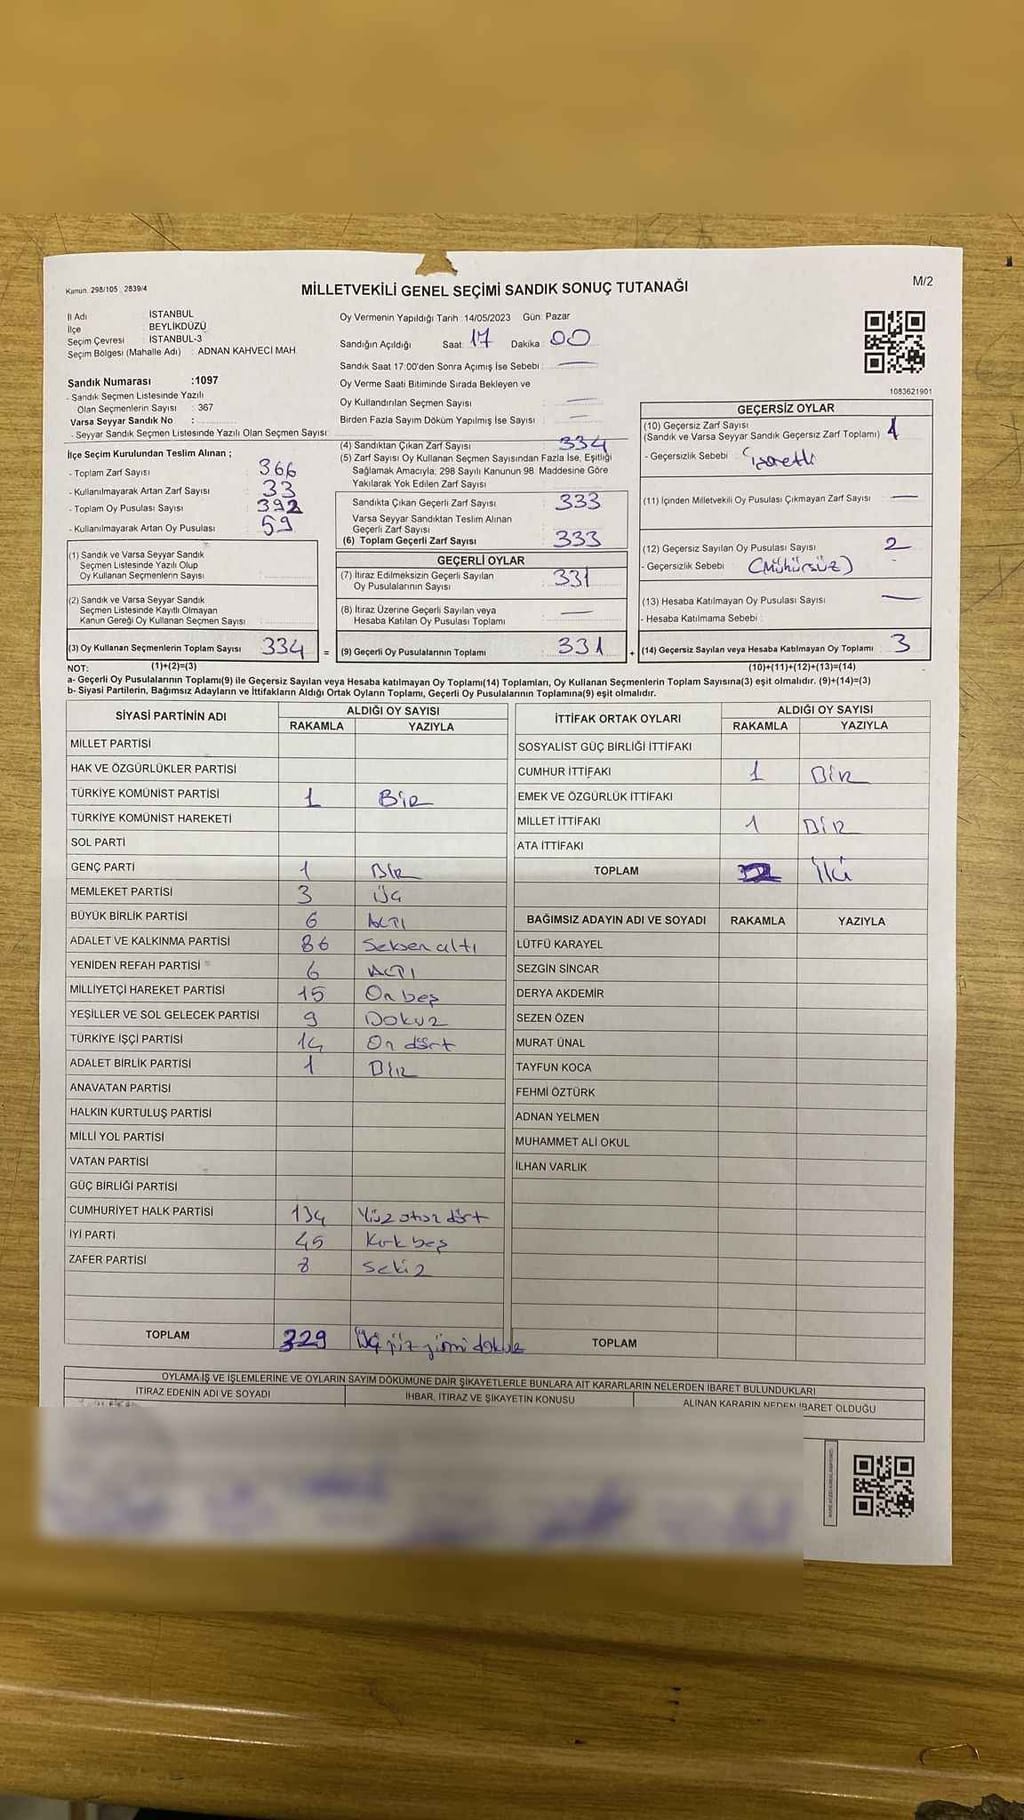 Kanun. 298/105 2839/4
MİLLETVEKİLİ GENEL SEÇİMİ SANDIK SONUÇ TUTANAĞI
M/2
İl Adı İSTANBUL
İlçe BEYLİKDÜZÜ
Seçim Çevresi İSTANBUL-3
Seçim Bölgesi (Mahalle Adı) : ADNAN KAHVECİ MAH.
Sandık Numarası :1097
- Sandık Seçmen Listesinde Yazılı
Olan Seçmenlerin Sayısı : 367
Varsa Seyyar Sandık No :
- Seyyar Sandık Seçmen Listesinde Yazılı Olan Seçmen Sayısı
İlçe Seçim Kurulundan Teslim Alınan ;
- Toplam Zarf Sayısı 366
- Kullanılmayarak Artan Zarf Sayısı 33
- Toplam Oy Pusulası Sayısı 392
- Kullanılmayarak Artan Oy Pusulası 59
(1) Sandık ve Varsa Seyyar Sandık
Seçmen Listesinde Yazılı Olup
Oy Kullanan Seçmenlerin Sayısı
(2) Sandık ve Varsa Seyyar Sandık
Seçmen Listesinde Kayıtlı Olmayan
Kanun Gereği Oy Kullanan Seçmen Sayısı
(3) Oy Kullanan Seçmenlerin Toplam Sayısı 334 =
Oy Vermenin Yapıldığı Tarih :14/05/2023 Gün: Pazar
Sandığın Açıldığı Saat: 17 Dakika: 00
Sandık Saat 17:00'den Sonra Açımış İse Sebebi : —
Oy Verme Saati Bitiminde Sırada Bekleyen ve
Oy Kullandırılan Seçmen Sayısı : —
Birden Fazla Sayım Döküm Yapılmış İse Sayısı : —
(4) Sandıktan Çıkan Zarf Sayısı 334
(5) Zarf Sayısı Oy Kullanan Seçmen Sayısından Fazla İse, Eşitliği
Sağlamak Amacıyla; 298 Sayılı Kanunun 98. Maddesine Göre
Yakılarak Yok Edilen Zarf Sayısı
Sandıkta Çıkan Geçerli Zarf Sayısı : 333
Varsa Seyyar Sandıktan Teslim Alınan
Geçerli Zarf Sayısı
(6) Toplam Geçerli Zarf Sayısı : 333
GEÇERLİ OYLAR
(7) İtiraz Edilmeksizin Geçerli Sayılan
Oy Pusulalarının Sayısı : 331
(8) İtiraz Üzerine Geçerli Sayılan veya
Hesaba Katılan Oy Pusulası Toplamı : —
(9) Geçerli Oy Pusulalarının Toplamı : 331 +
1083621901
GEÇERSİZ OYLAR
(10) Geçersiz Zarf Sayısı
(Sandık ve Varsa Seyyar Sandık Geçersiz Zarf Toplamı) 1
- Geçersizlik Sebebi : işaretli
(11) İçinden Milletvekili Oy Pusulası Çıkmayan Zarf Sayısı —
(12) Geçersiz Sayılan Oy Pusulası Sayısı 2
- Geçersizlik Sebebi (Mühürsüz)
(13) Hesaba Katılmayan Oy Pusulası Sayısı —
- Hesaba Katılmama Sebebi
(14) Geçersiz Sayılan veya Hesaba Katılmayan Oy Toplamı 3
NOT: (1)+(2)=(3) (10)+(11)+(12)+(13)=(14)
a- Geçerli Oy Pusulalarının Toplamı(9) ile Geçersiz Sayılan veya Hesaba katılmayan Oy Toplamı(14) Toplamları, Oy Kullanan Seçmenlerin Toplam Sayısına(3) eşit olmalıdır. (9)+(14)=(3)
b- Siyasi Partilerin, Bağımsız Adayların ve İttifakların Aldığı Ortak Oyların Toplamı, Geçerli Oy Pusulalarının Toplamına(9) eşit olmalıdır.
SİYASİ PARTİNİN ADI ALDIĞI OY SAYISI
RAKAMLA YAZIYLA
MİLLET PARTİSİ
HAK VE ÖZGÜRLÜKLER PARTİSİ
TÜRKİYE KOMÜNİST PARTİSİ 1 Bir
TÜRKİYE KOMÜNİST HAREKETİ
SOL PARTİ
GENÇ PARTİ 1 Bir
MEMLEKET PARTİSİ 3 üç
BÜYÜK BİRLİK PARTİSİ 6 Altı
ADALET VE KALKINMA PARTİSİ 86 Seksen altı
YENİDEN REFAH PARTİSİ 6 Altı
MİLLİYETÇİ HAREKET PARTİSİ 15 On beş
YEŞİLLER VE SOL GELECEK PARTİSİ 9 Dokuz
TÜRKİYE İŞÇİ PARTİSİ 14 On dört
ADALET BİRLİK PARTİSİ 1 Bir
ANAVATAN PARTİSİ
HALKIN KURTULUŞ PARTİSİ
MİLLİ YOL PARTİSİ
VATAN PARTİSİ
GÜÇ BİRLİĞİ PARTİSİ
CUMHURİYET HALK PARTİSİ 134 Yüz otuz dört
İYİ PARTİ 45 Kırk beş
ZAFER PARTİSİ 8 Sekiz
TOPLAM 329 Üç yüz yirmi dokuz
İTTİFAK ORTAK OYLARI ALDIĞI OY SAYISI
RAKAMLA YAZIYLA
SOSYALİST GÜÇ BİRLİĞİ İTTİFAKI
CUMHUR İTTİFAKI 1 Bir
EMEK VE ÖZGÜRLÜK İTTİFAKI
MİLLET İTTİFAKI 1 Bir
ATA İTTİFAKI
TOPLAM 2 İki
BAĞIMSIZ ADAYIN ADI VE SOYADI RAKAMLA YAZIYLA
LÜTFÜ KARAYEL
SEZGİN SİNCAR
DERYA AKDEMİR
SEZEN ÖZEN
MURAT ÜNAL
TAYFUN KOCA
FEHMİ ÖZTÜRK
ADNAN YELMEN
MUHAMMET ALİ OKUL
İLHAN VARLIK
TOPLAM
OYLAMA İŞ VE İŞLEMLERİNE VE OYLARIN SAYIM DÖKÜMÜNE DAİR ŞİKAYETLERLE BUNLARA AİT KARARLARIN NELERDEN İBARET BULUNDUKLARI
İTİRAZ EDENİN ADI VE SOYADI İHBAR, İTİRAZ VE ŞİKAYETİN KONUSU ALINAN KARARIN NEDEN İBARET OLDUĞU